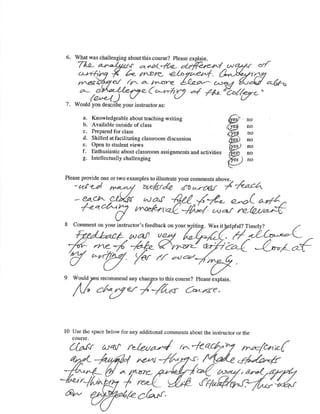 6. What was challenging about this course? Please explain.
The analysis and the different ways of
writing to be more eloquent. Conveying
messages in a more clear way was also
a challenge (writing at the "college"
level)
7. Would you describe your instructor as:
a. Knowledgeable about teaching writing yes no
b. Available outside of class yes no
c. Prepared for class yes no
d. Skilled at facilitating classroom discussion yes no
e. Open to student views yes no
f. Enthusiastic about classroom assignments and activities yes no
g. Intellectually challenging yes no
Please provide one or two examples to illustrate your comments above.
- used many outside sources to teach
- each class was full to the end with
teaching material that was relevant
8 Comment on your instructor's feedback on your writing. Was it helpful? Timely?
Feedback was very helpful. It allowed
for me to take a more critical look at
my writing. Yes it was timely.
9 Would you recommend any changes to this course? Please explain.
No changes to this course.
10 Use the space below for any additional comments about the instructor or the
course.
Class was relevant in teaching material
and taught new things. Made students
think in a more analytical way, and apply
their thinking to real life situations. This was
an enjoyable class.